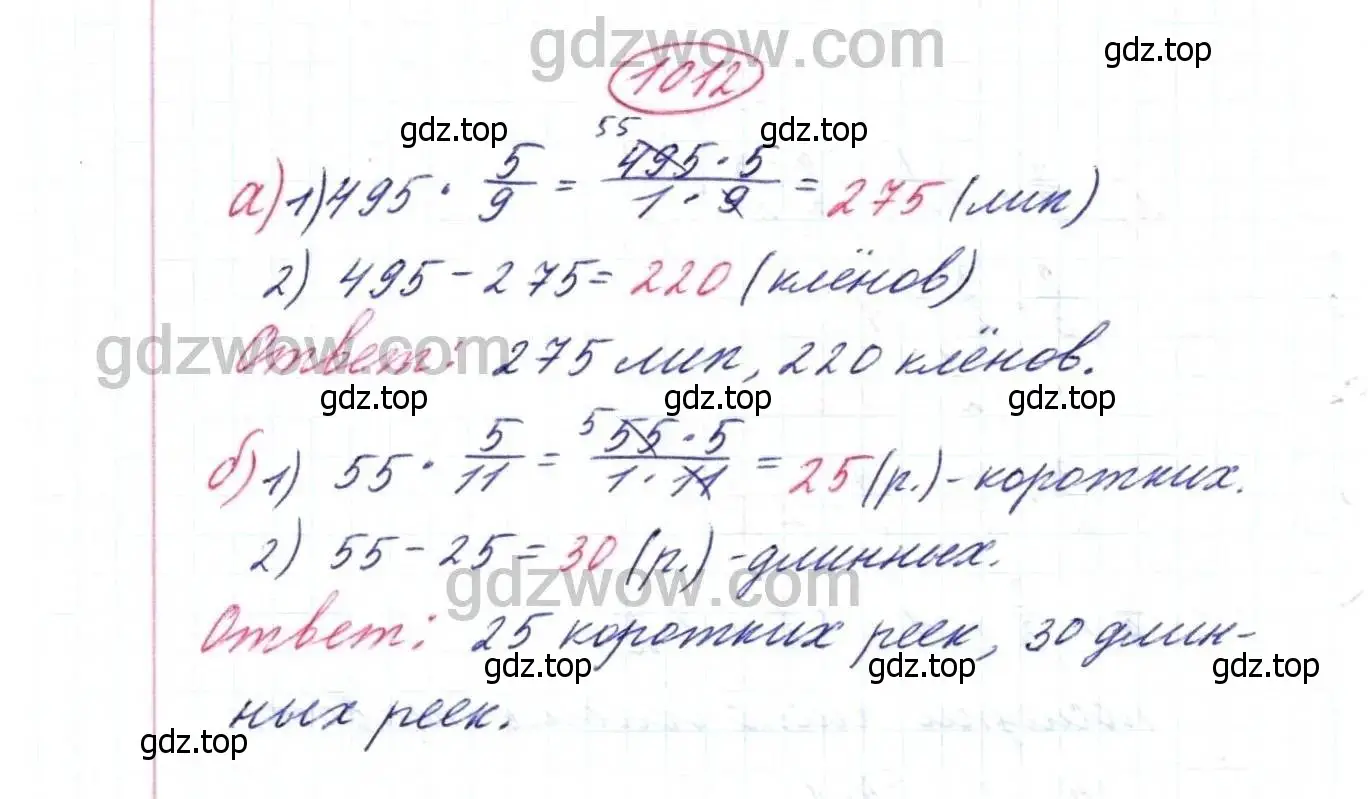 gdzwow.com
gdz.top
1012
gdz.top gdz.top
а) 1) 495 · 5/9 = 55 495 · 5 / 1 · 9 = 275 (лип)
2) 495 - 275 = 220 (клёнов)
gdzwow.com
Ответ: 275 лип, 220 клёнов.
gdz.top gdz.top gdz.top
б) 1) 55 · 5/11 = 5 55 · 5 / 1 · 11 = 25 (р.) - коротких.
2) 55 - 25 = 30 (р.) - длинных.
gdzwow.com
Ответ: 25 коротких реек, 30 длин-
gdz.top gdz.top
ных реек.
gdz.top